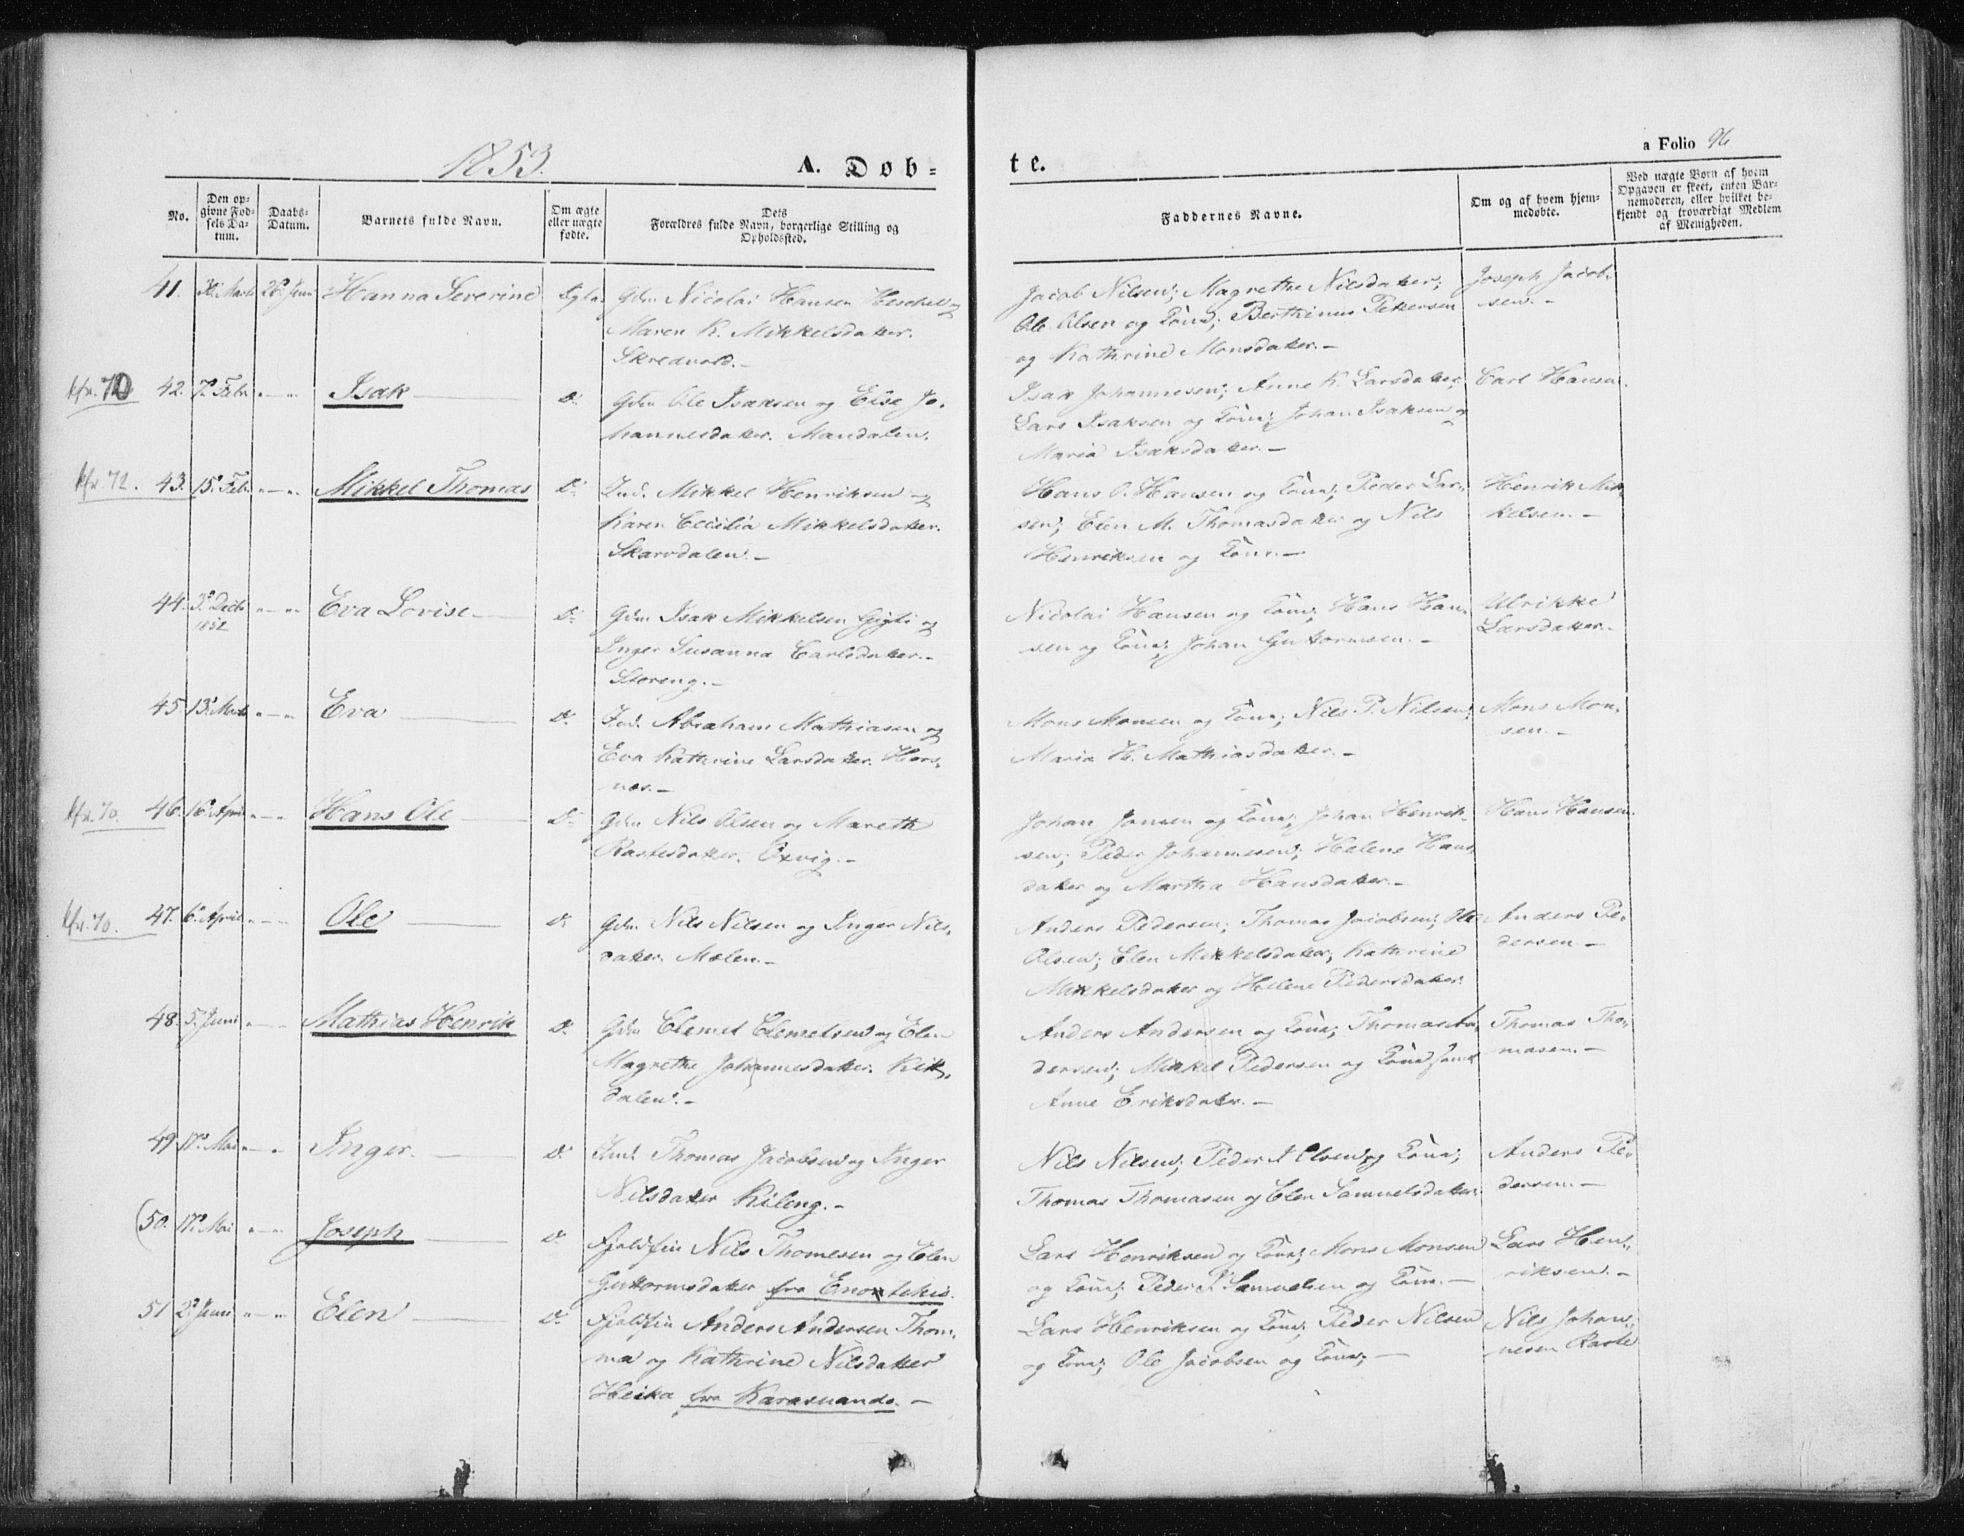 1853.
A. Døb-
te.
a Folio 96
No.
Den op-
givne Fød-
sels Da-
tum.
Daabs-
Datum.
Barnets fulde Navn.
Om ægte
eller uægte
fødte.
Dets
Forældres fulde Navn, borgerlige Stilling og
Opholdssted.
Faddernes Navne.
Om og af hvem hjem-
medøbte.
Ved uægte Born af hvem
Opgaven er skeet, enten Bar-
nemoderen, eller hvilket be-
kjendt og troværdigt Medlem
af Menigheden.
41. Marts 26. Juni Hanna Severine Egte Gdm Nicolai Hansen og
Maren K. Mikkelsdatter.
Skredvold.-
Jacob Nilsen; Magrethe Nilsdatter;
Ole Olsen og Kone; Berthinus Pettersen
og Kathrine Monsdatter.-
Joseph Jacob-
sen.-
kfr. 70 42. 7. Febr. " - " Isak D. Gdm Ole Isaksen og Else Jo-
hannesdatter. Mandalen.
Isak Johannesen; Anne K. Larsdatter,
Lars Isaksen og Kone; Johan Isaksen og
Maria Isaksdatter.-
Carl Hansen.
kfr. 72. 43. 15. Feb. " - " Mikkel Thomas D. Ind. Mikkel Henriksen og
Karen Cecilia Mikkelsdatter.
Skarvdalen.-
Hans O. Hansen og Kone; Peder Lar-
sen; Elen M. Thomasdatter og Nils
Henriksen og Kone.-
Henrik Mik-
kelsen.-
44. 3. Decb. " - " Eva Lovise D. Gdm Isak Mikkelsen Gigti og
1852
Inger Susanna Carlsdatter.-
Storeng.-
Nicolai Hansen og Kone; Hans Han-
sen og Kone; Johan Guttormsen.-
Ulrikke
Larsdatter.
45. 13. Marts " - " Eva D. Ind. Abraham Mathiasen og
Eva Kathrine Larsdatter. Hors-
nes.-
Mons Monsen og Kone; Nils P. Nilsen;
Maria H. Mathiasdatter.-
Mons Mon-
sen.-
kfr. 70. 46. 16. April " - " Hans Ole D. Gdm Nils Olsen og Mareth
Rastesdatter. Oxvig.-
Johan Jonsen og Kone; Johan Henrik-
sen; Peder Johannesen; Helene Hans-
datter og Martha Hansdatter.-
Hans Hansen.
kfr. 70. 47. 6. April " - " Ole D. Gdm Nils Nilsen og Inger Nils-
datter. Mølen.-
Anders Pedersen; Thomas Jacobsen; Ole
Olsen; Elen Mikkelsdatter; Kathrine
Mikkelsdatter og Helene Pedersdatter.
Anders Pe-
dersen.-
48. 5. Juni " - " Mathias Henrik D. Gdm Clemet Clemetsen og Elen
Magrethe Johannesdatter. Kit-
dalen.-
Anders Andersen og Kone; Thomas An-
dersen; Mikkel Pedersen og Kone samt
Anne Eriksdatter.-
Thomas Tho-
masen.-
49. 17. Mai " - " Inger. D. Ind. Thomas Jacobsen og Inger
Nilsdatter Kileng.-
Nils Nilsen; Peder A Olsen og Kone;
Thomas Thomasen og Elen Samuelsdatter.
Anders Pe-
dersen.-
(50. 17. Mai " - " Joseph D. Fjeldfin Nils Thomesen og Elen
Guttormsdatter fra Enontekis.
Lars Henriksen og Kone; Mons Monsen
og Kone; Peder Samuelsen og Kone.-
Lars Hen-
riksen.-
51 2. Juni " - " Elen D. Fjeldfin Anders Andersen Thom-
ma og Kathrine Nilsdatter
Heika fra Karesuando.-
Lars Henriksen og Kone; Peder Nilsen
og Kone; Ole Jacobsen og Kone;-
Nils Johan-
nesen Raste